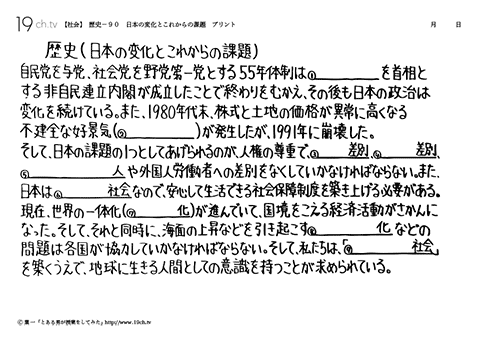 19ch.tv 【社会】 歴史－90 日本の変化とこれからの課題 プリント 月 日
歴史(日本の変化とこれからの課題)
自民党を与党、社会党を野党第一党とする55年体制は①________を首相と
する非自民連立内閣が成立したことで終わりをむかえ、その後も日本の政治は
変化を続けている。また、1980年代末、株式と土地の価格が異常に高くなる
不健全な好景気(②________)が発生したが、1991年に崩壊した。
そして、日本の課題の1つとしてあげられるのが、人権の尊重で、③____差別、④____差別、
⑤________人や外国人労働者への差別をなくしていかなければならない。また、
日本は⑥________社会なので、安心して生活できる社会保障制度を築き上げる必要がある。
現在、世界の一体化(⑦________化)が進んでいて、国境をこえる経済活動がさかんに
なった。そして、それと同時に、海面の上昇などを引き起こす⑧________化などの
問題は各国が協力していかなければならない。そして、私たちは、「⑨________社会」
を築くうえで、地球に生きる人間としての意識を持つことが求められている。
© 葉一「とある男が授業をしてみた」http://www.19ch.tv